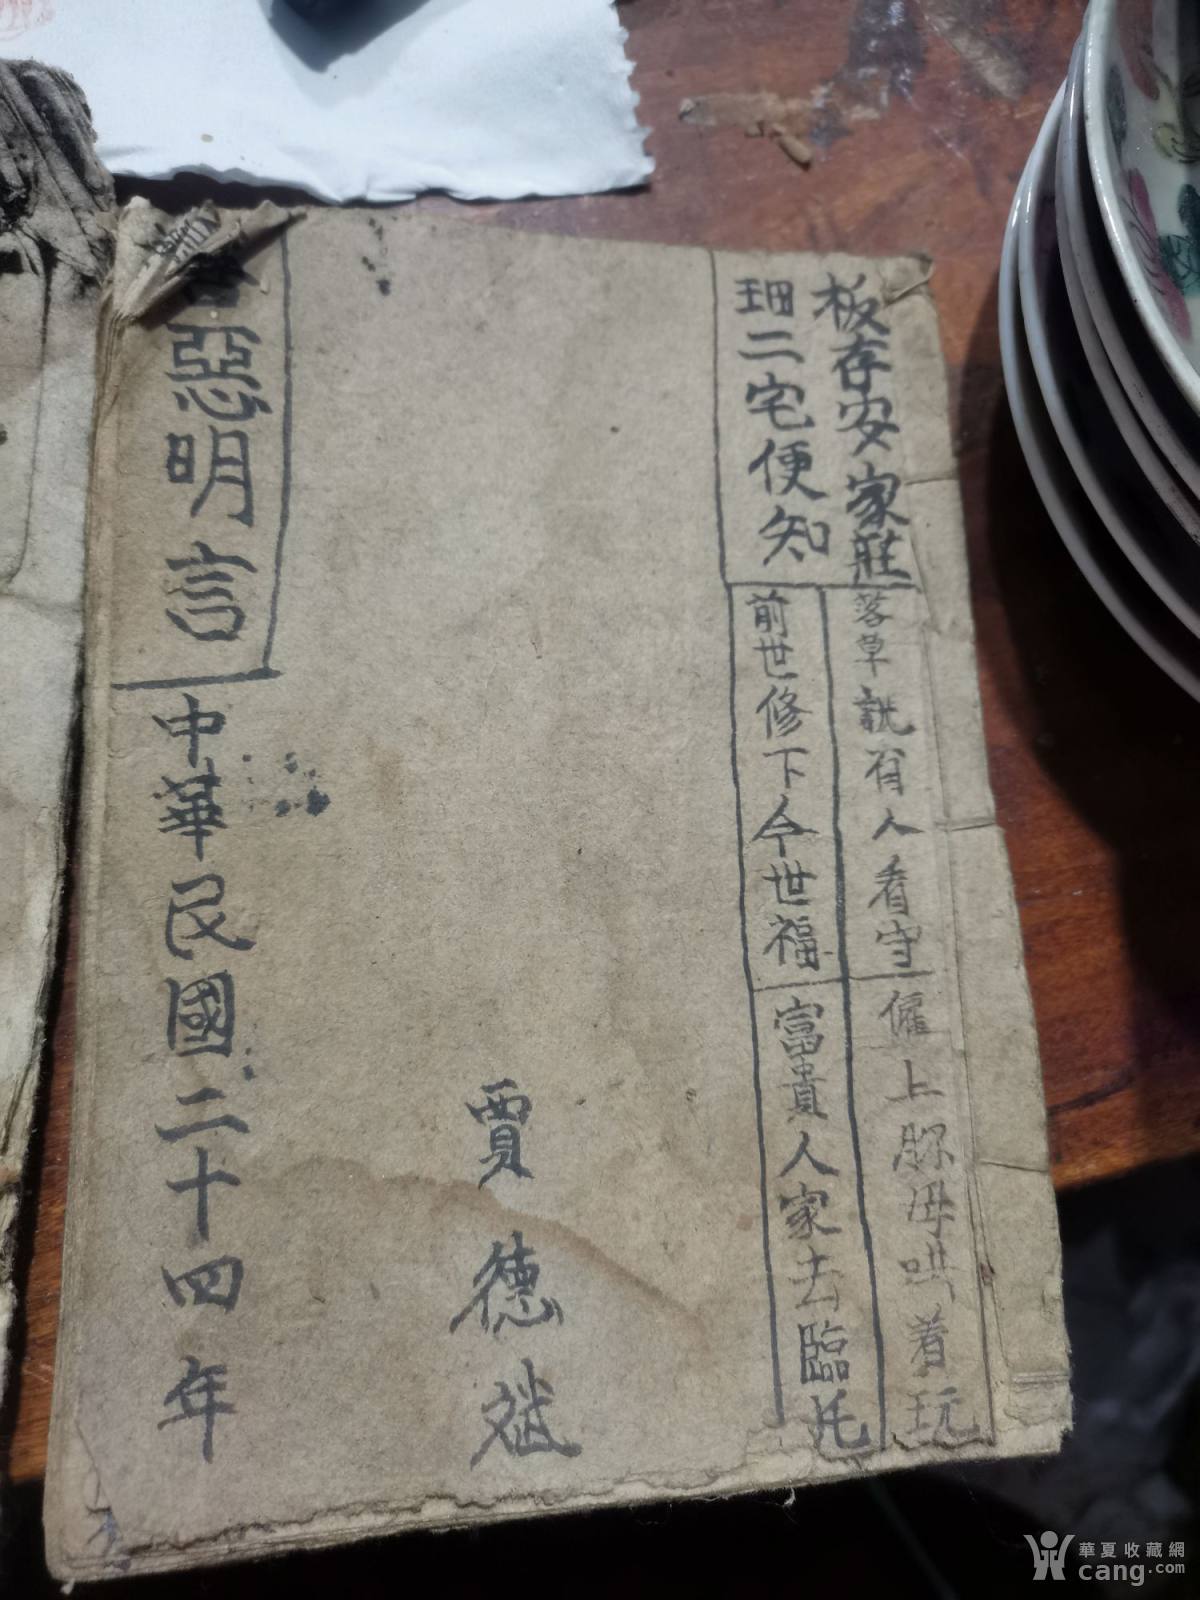 板存安家莊
二宅便知
落草就有人看守
前世修下今世福
僱上妳母哄着玩
富貴人家去臨托
賈德斌
惡明言
中華民國二十四年
華夏收藏網
cang.com